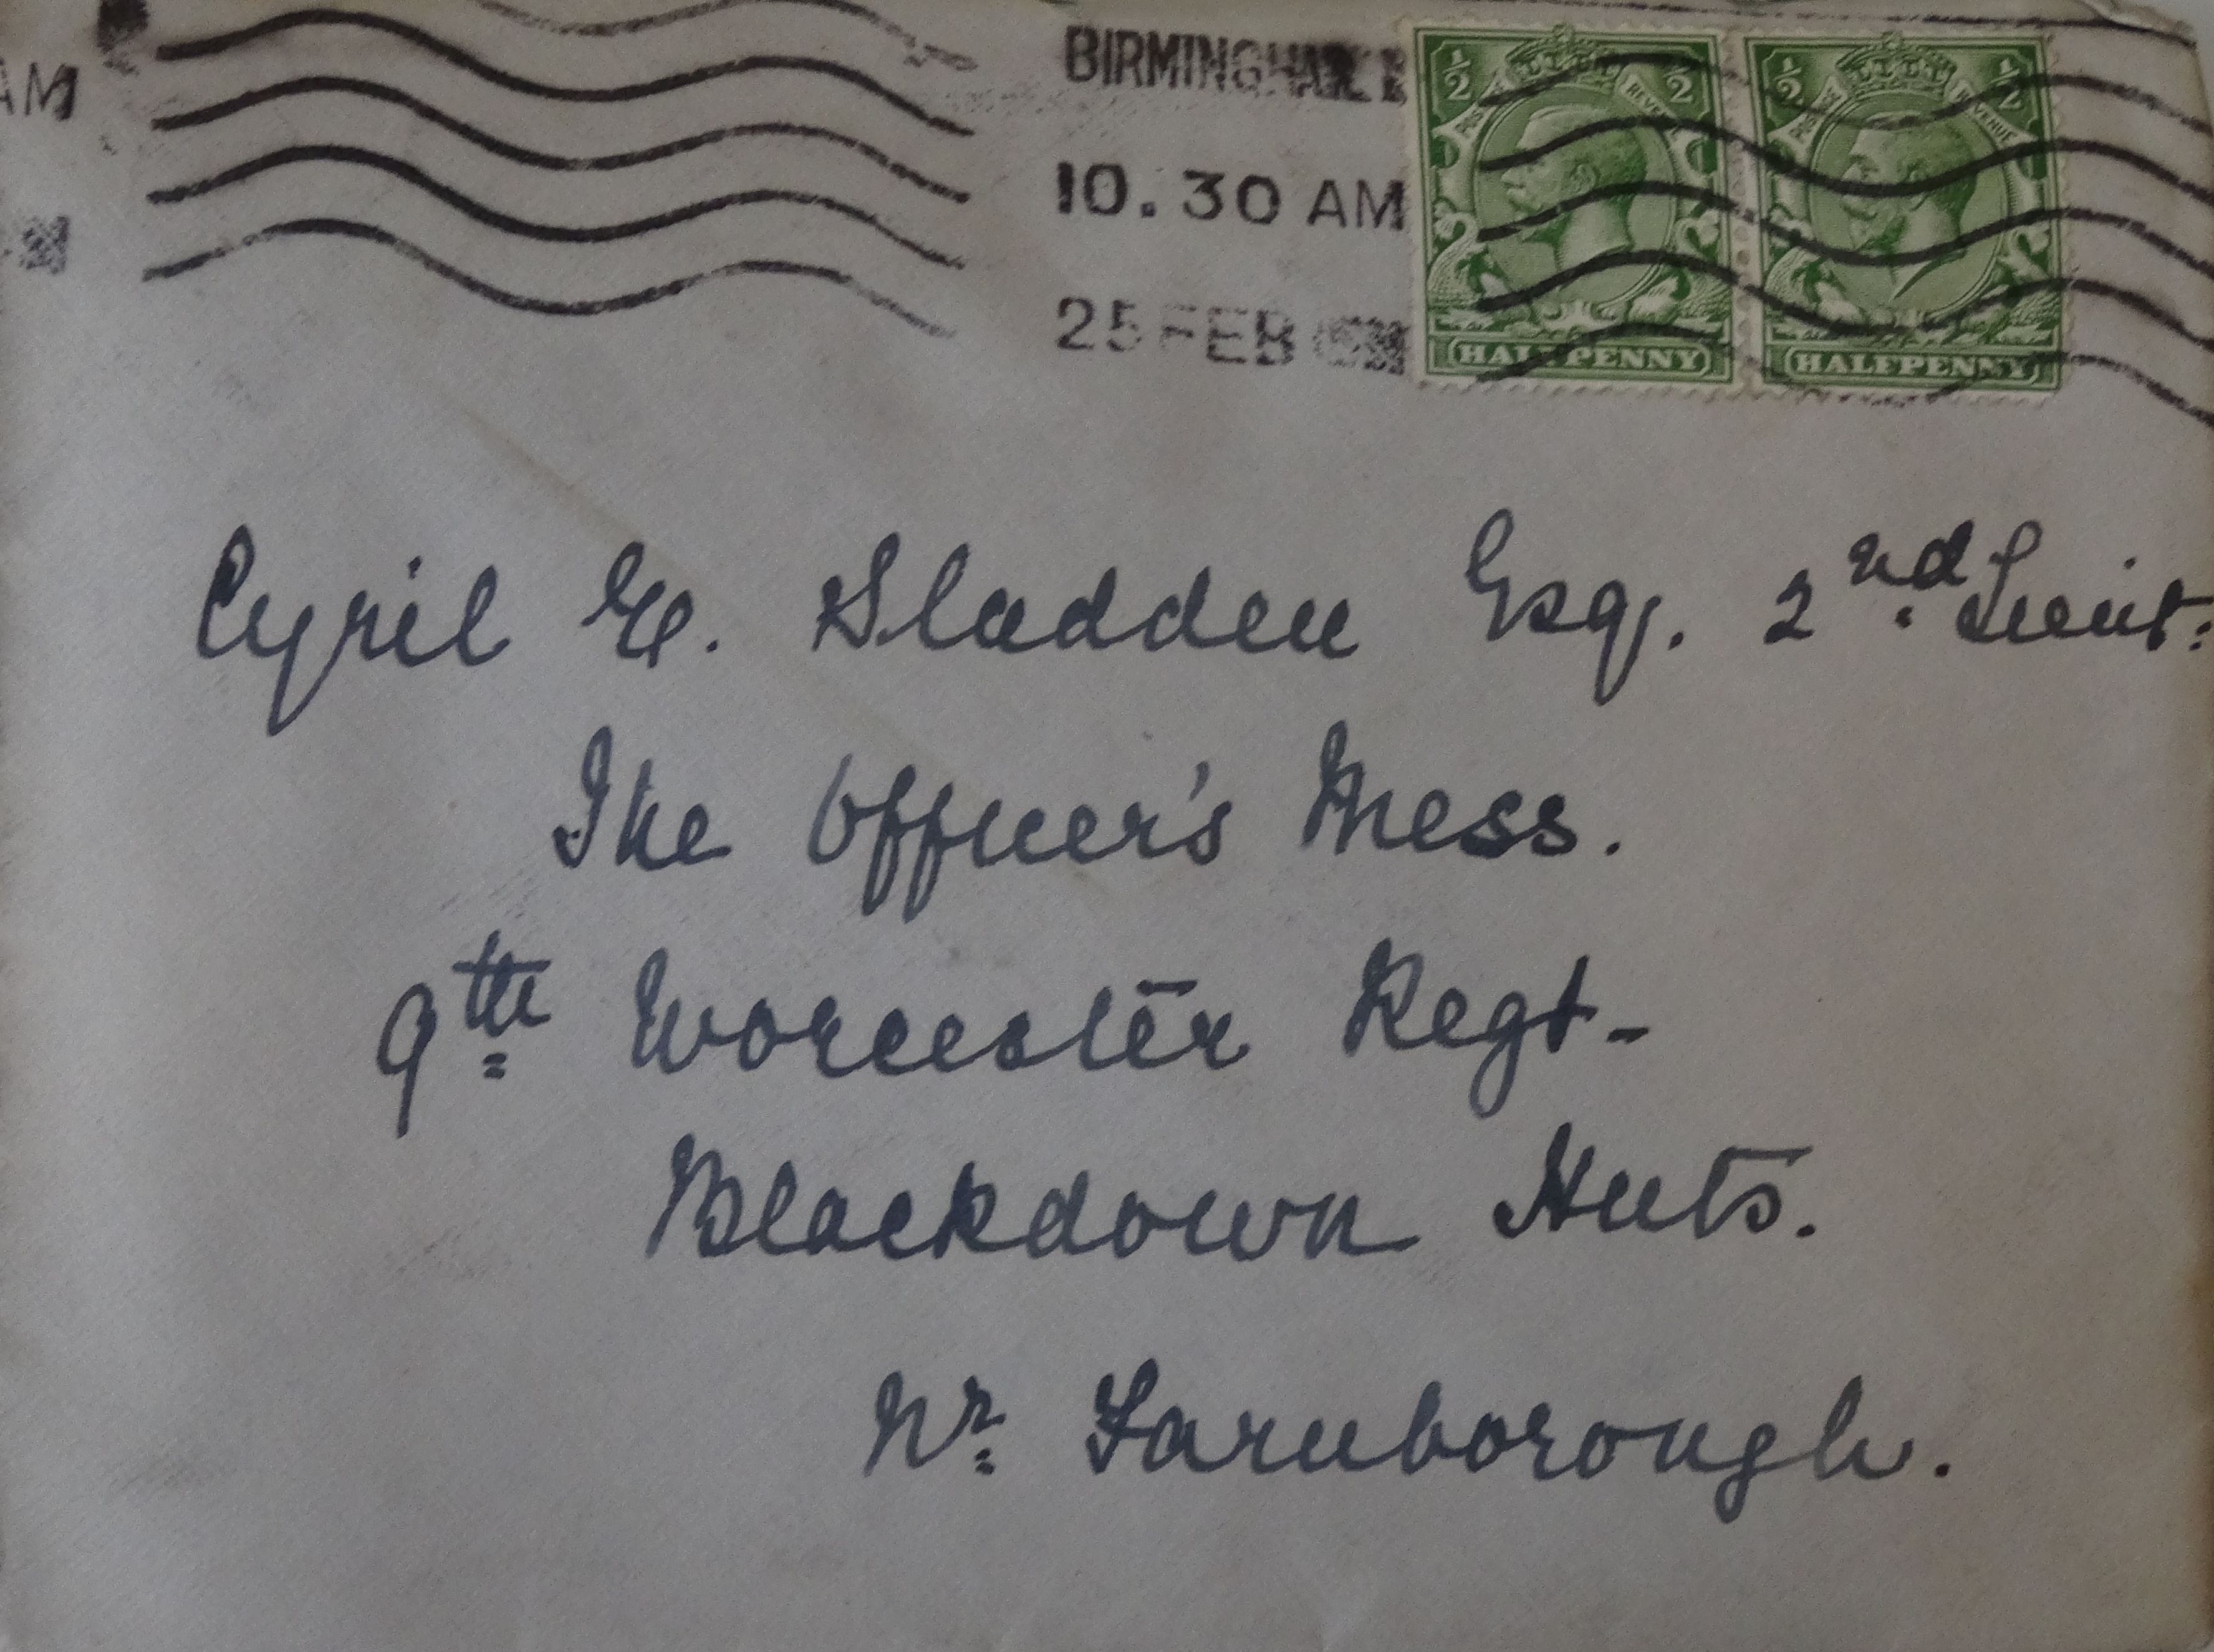 AM
BIRMINGHAM
10.30 AM
25 FEB
½ ½ ½ ½
POSTAGE REVENUE POSTAGE REVENUE
HALFPENNY HALFPENNY
Cyril E. Sladden Esq. 2nd Lieut.
The Officer's Mess.
9th Worcester Regt-
Blackdown Huts.
Nr. Farnborough.